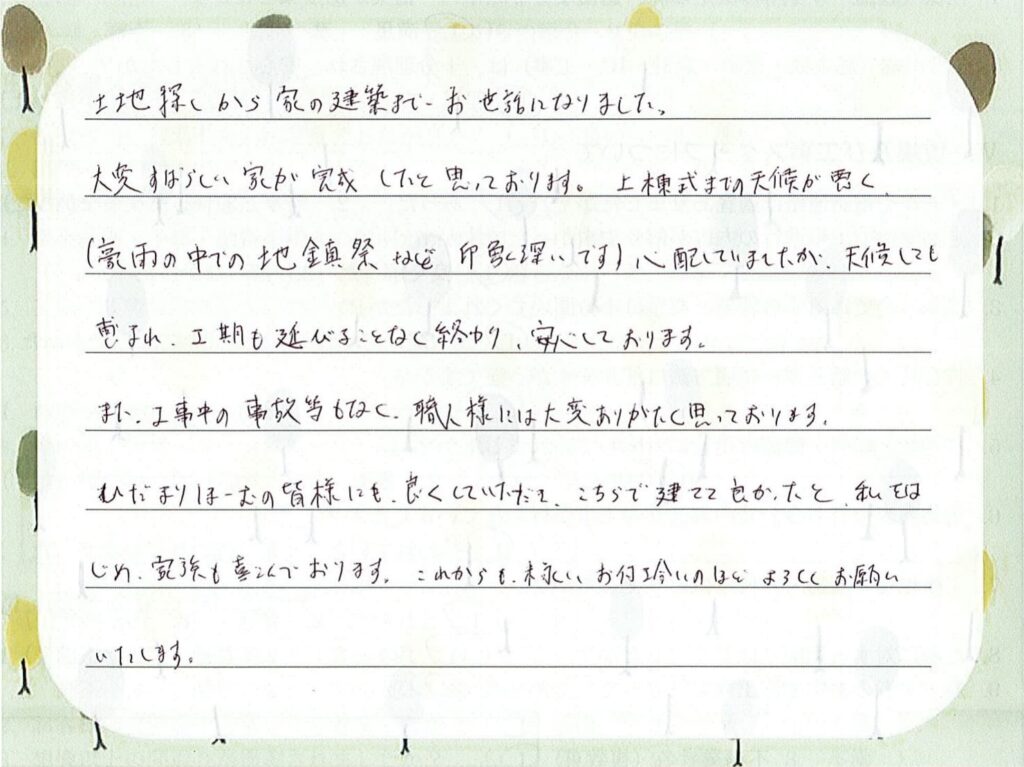 土地探しから家の建築まで お世話になりました。
大変すばらしい家が完成したと思っております。上棟式までの天候が悪く、
(豪雨の中での地鎮祭など印象深いです)心配していましたが、天候しても
恵まれ、工期も延びることなく終わり、安心しております。
また、工事中の事故等もなく、職人様には大変ありがたく思っております。
ひだまりほーむの皆様にも、良くしていただき、こちらで建てて良かったと、私をは
じめ、家族も喜んでおります。これからも、末長いお付き合いのほど よろしくお願い
いたします。